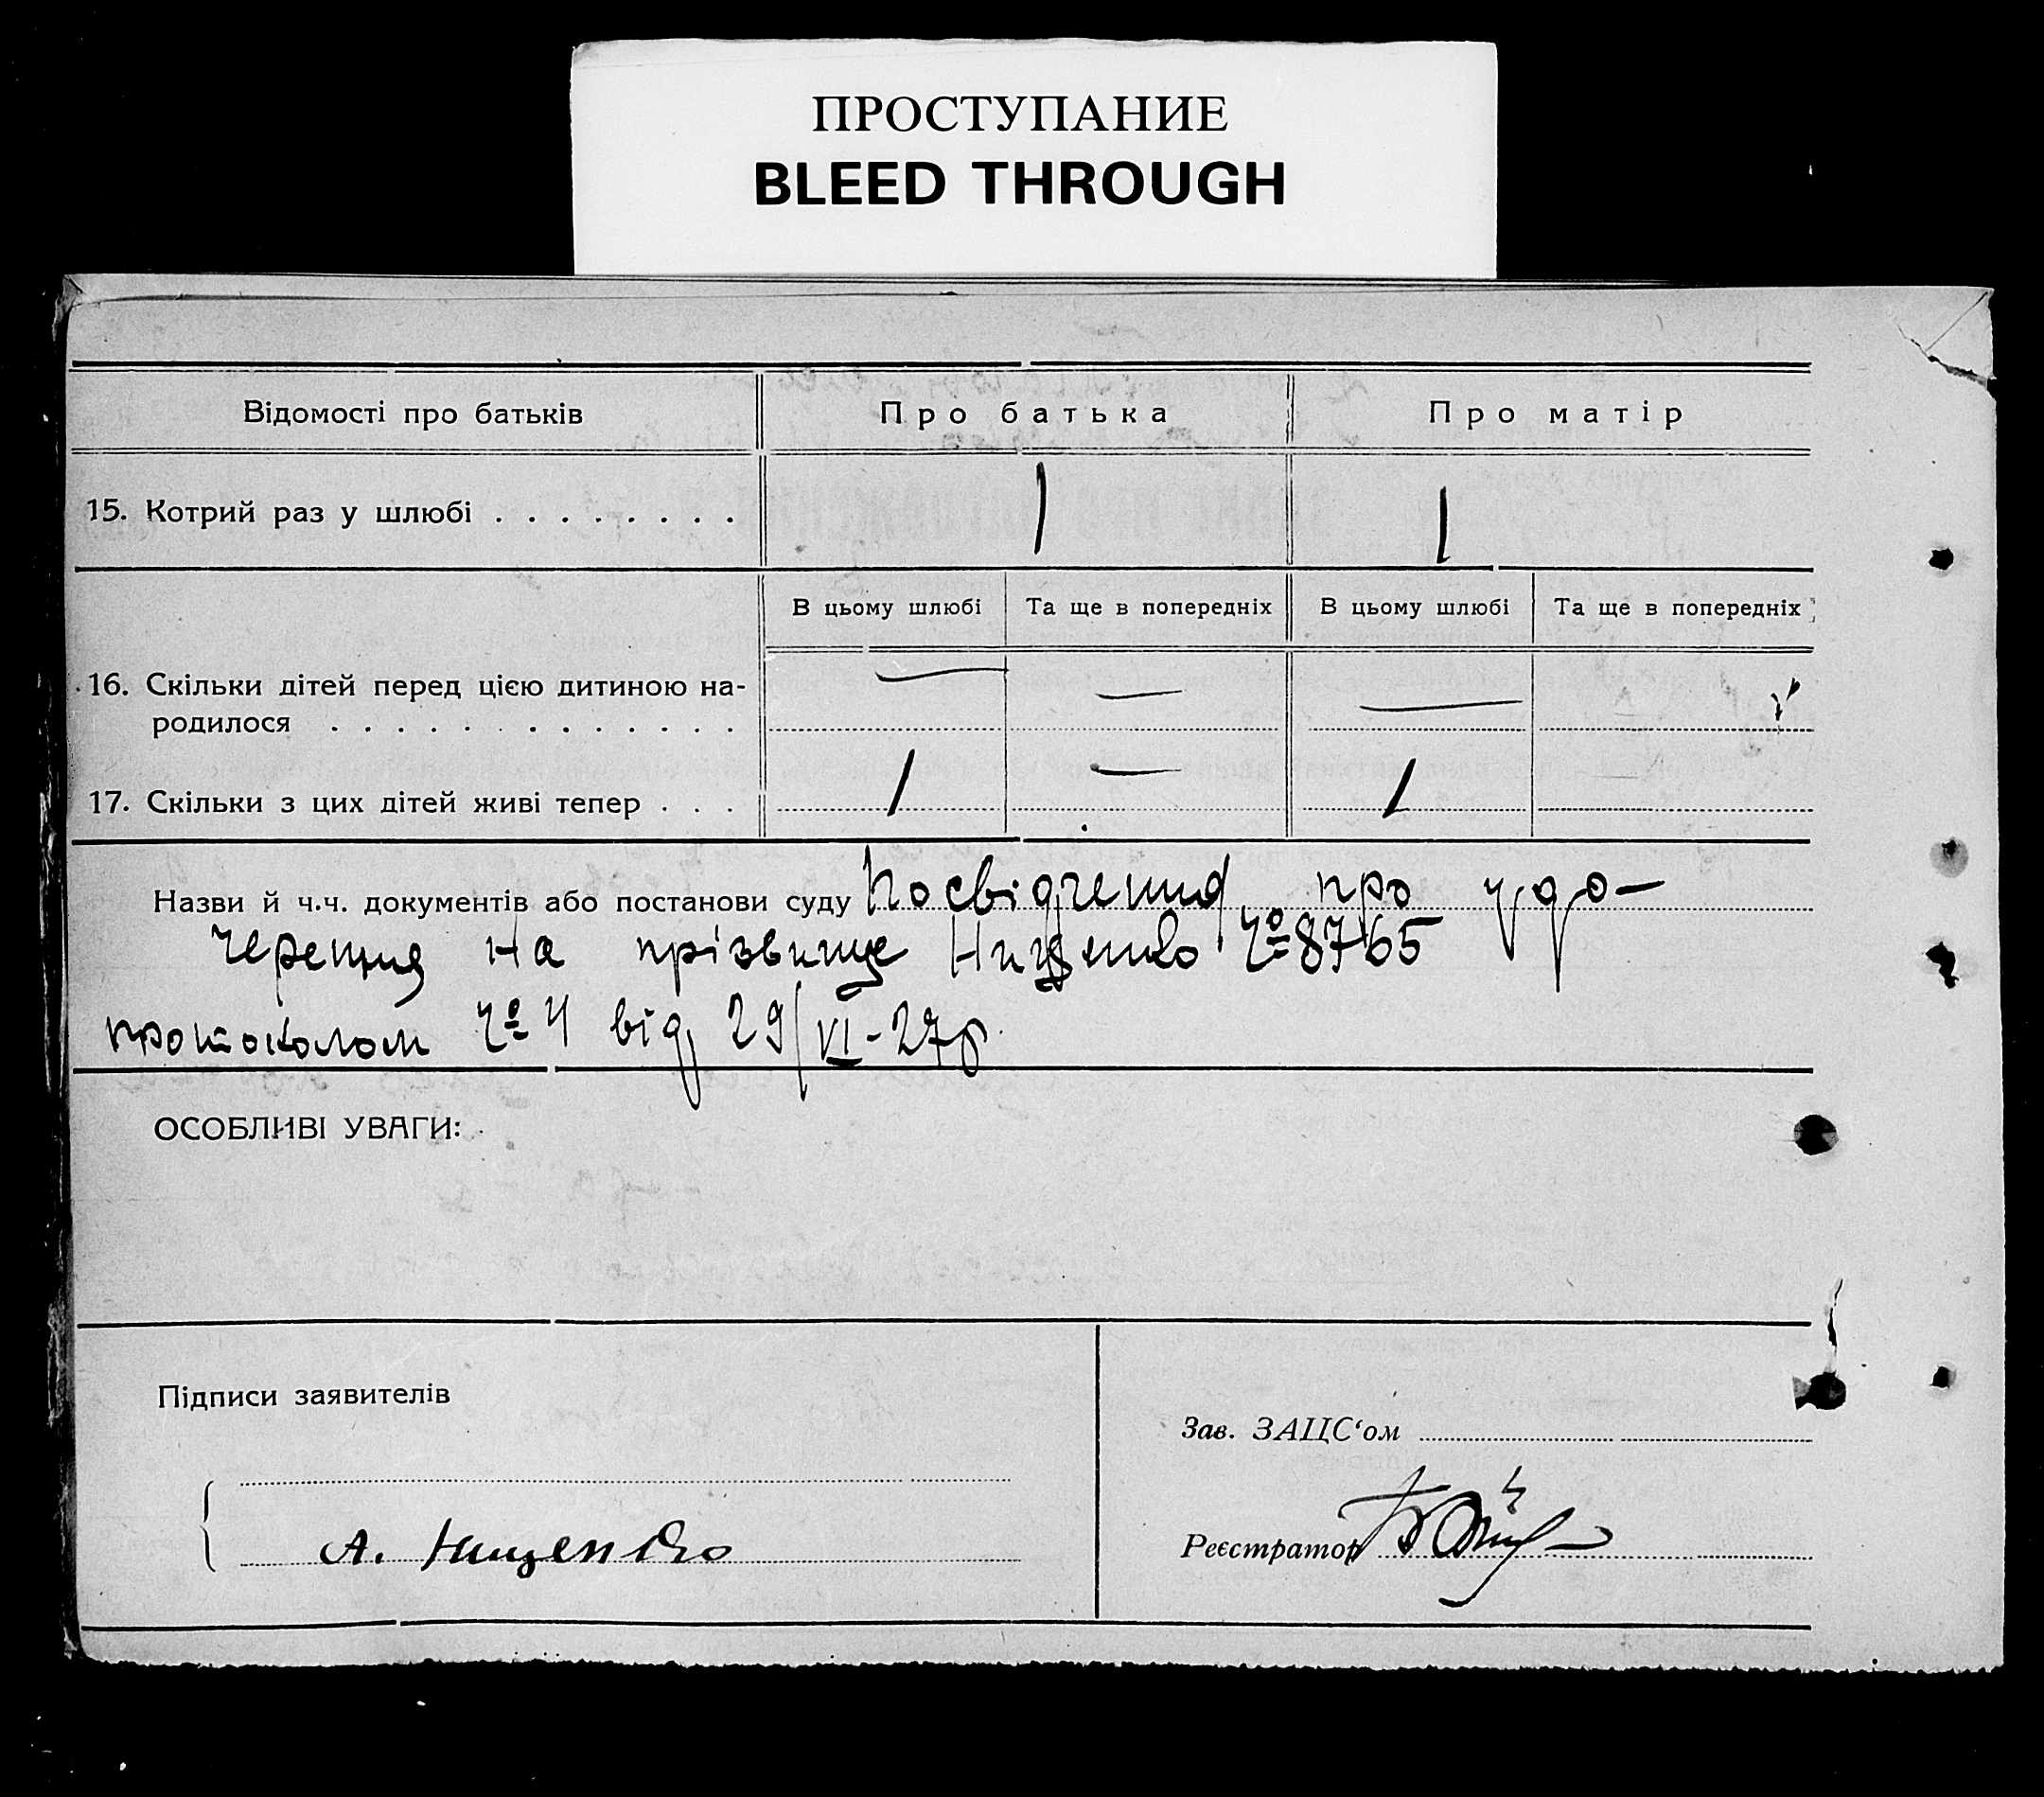 ПРОСТУПАНИЕ
BLEED THROUGH
Відомості про батьків Про батька Про матір
15. Котрий раз у шлюбі . . . . . . . . 1 1
В цьому шлюбі Та ще в попередніх В цьому шлюбі Та ще в попередніх
16. Скільки дітей перед цією дитиною на- — — —
родилося . . . . . . . . . . . . .
17. Скільки з цих дітей живі тепер . . . 1 — 1
Назви й ч.ч. документів або постанови суду Посвідчення про удо-
черення на прізвище Нищенко Ч° 8765
протоколом Ч° 4 від 29/VI-27р.
ОСОБЛИВІ УВАГИ:
Підписи заявителів
Зав. ЗАЦС‘ом
А. Нищенко
Реєстратор